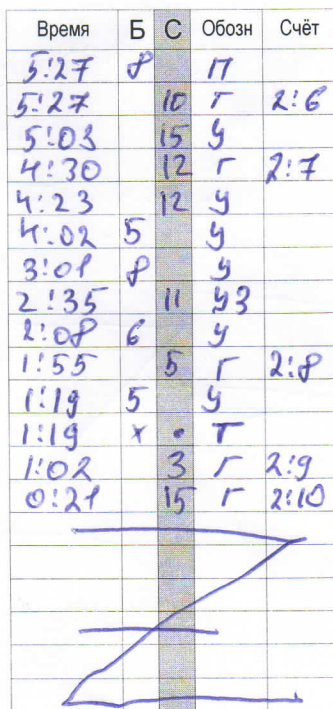 Время Б С Обозн Счёт
5:27 8 П
5:27 10 Г 2:6
5:03 15 У
4:30 12 Г 2:7
4:23 12 У
4:02 5 У
3:01 8 У
2:35 11 УЗ
2:08 6 У
1:55 5 Г 2:8
1:19 5 У
1:19 x • Т
1:02 3 Г 2:9
0:21 15 Г 2:10